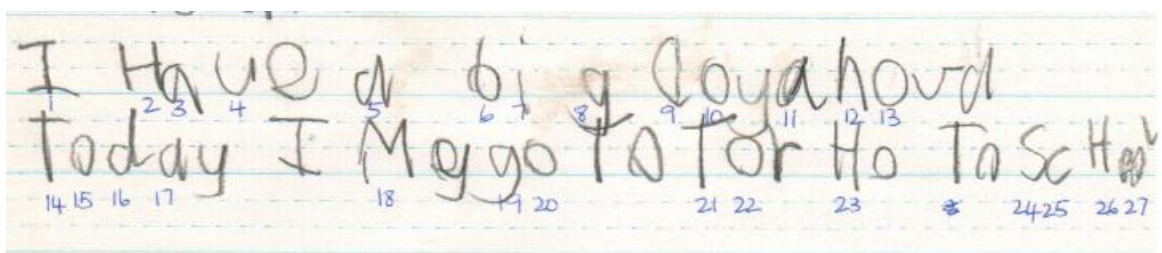 I Have a big Coyahoud
1 2 3 4 5 6 7 8 9 10 11 12 13
Today I May go To Tor Ho To ScHool
14 15 16 17 18 19 20 21 22 23 24 25 26 27